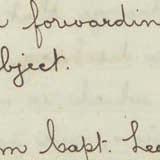 forwardin
bject.
m Capt. Lea